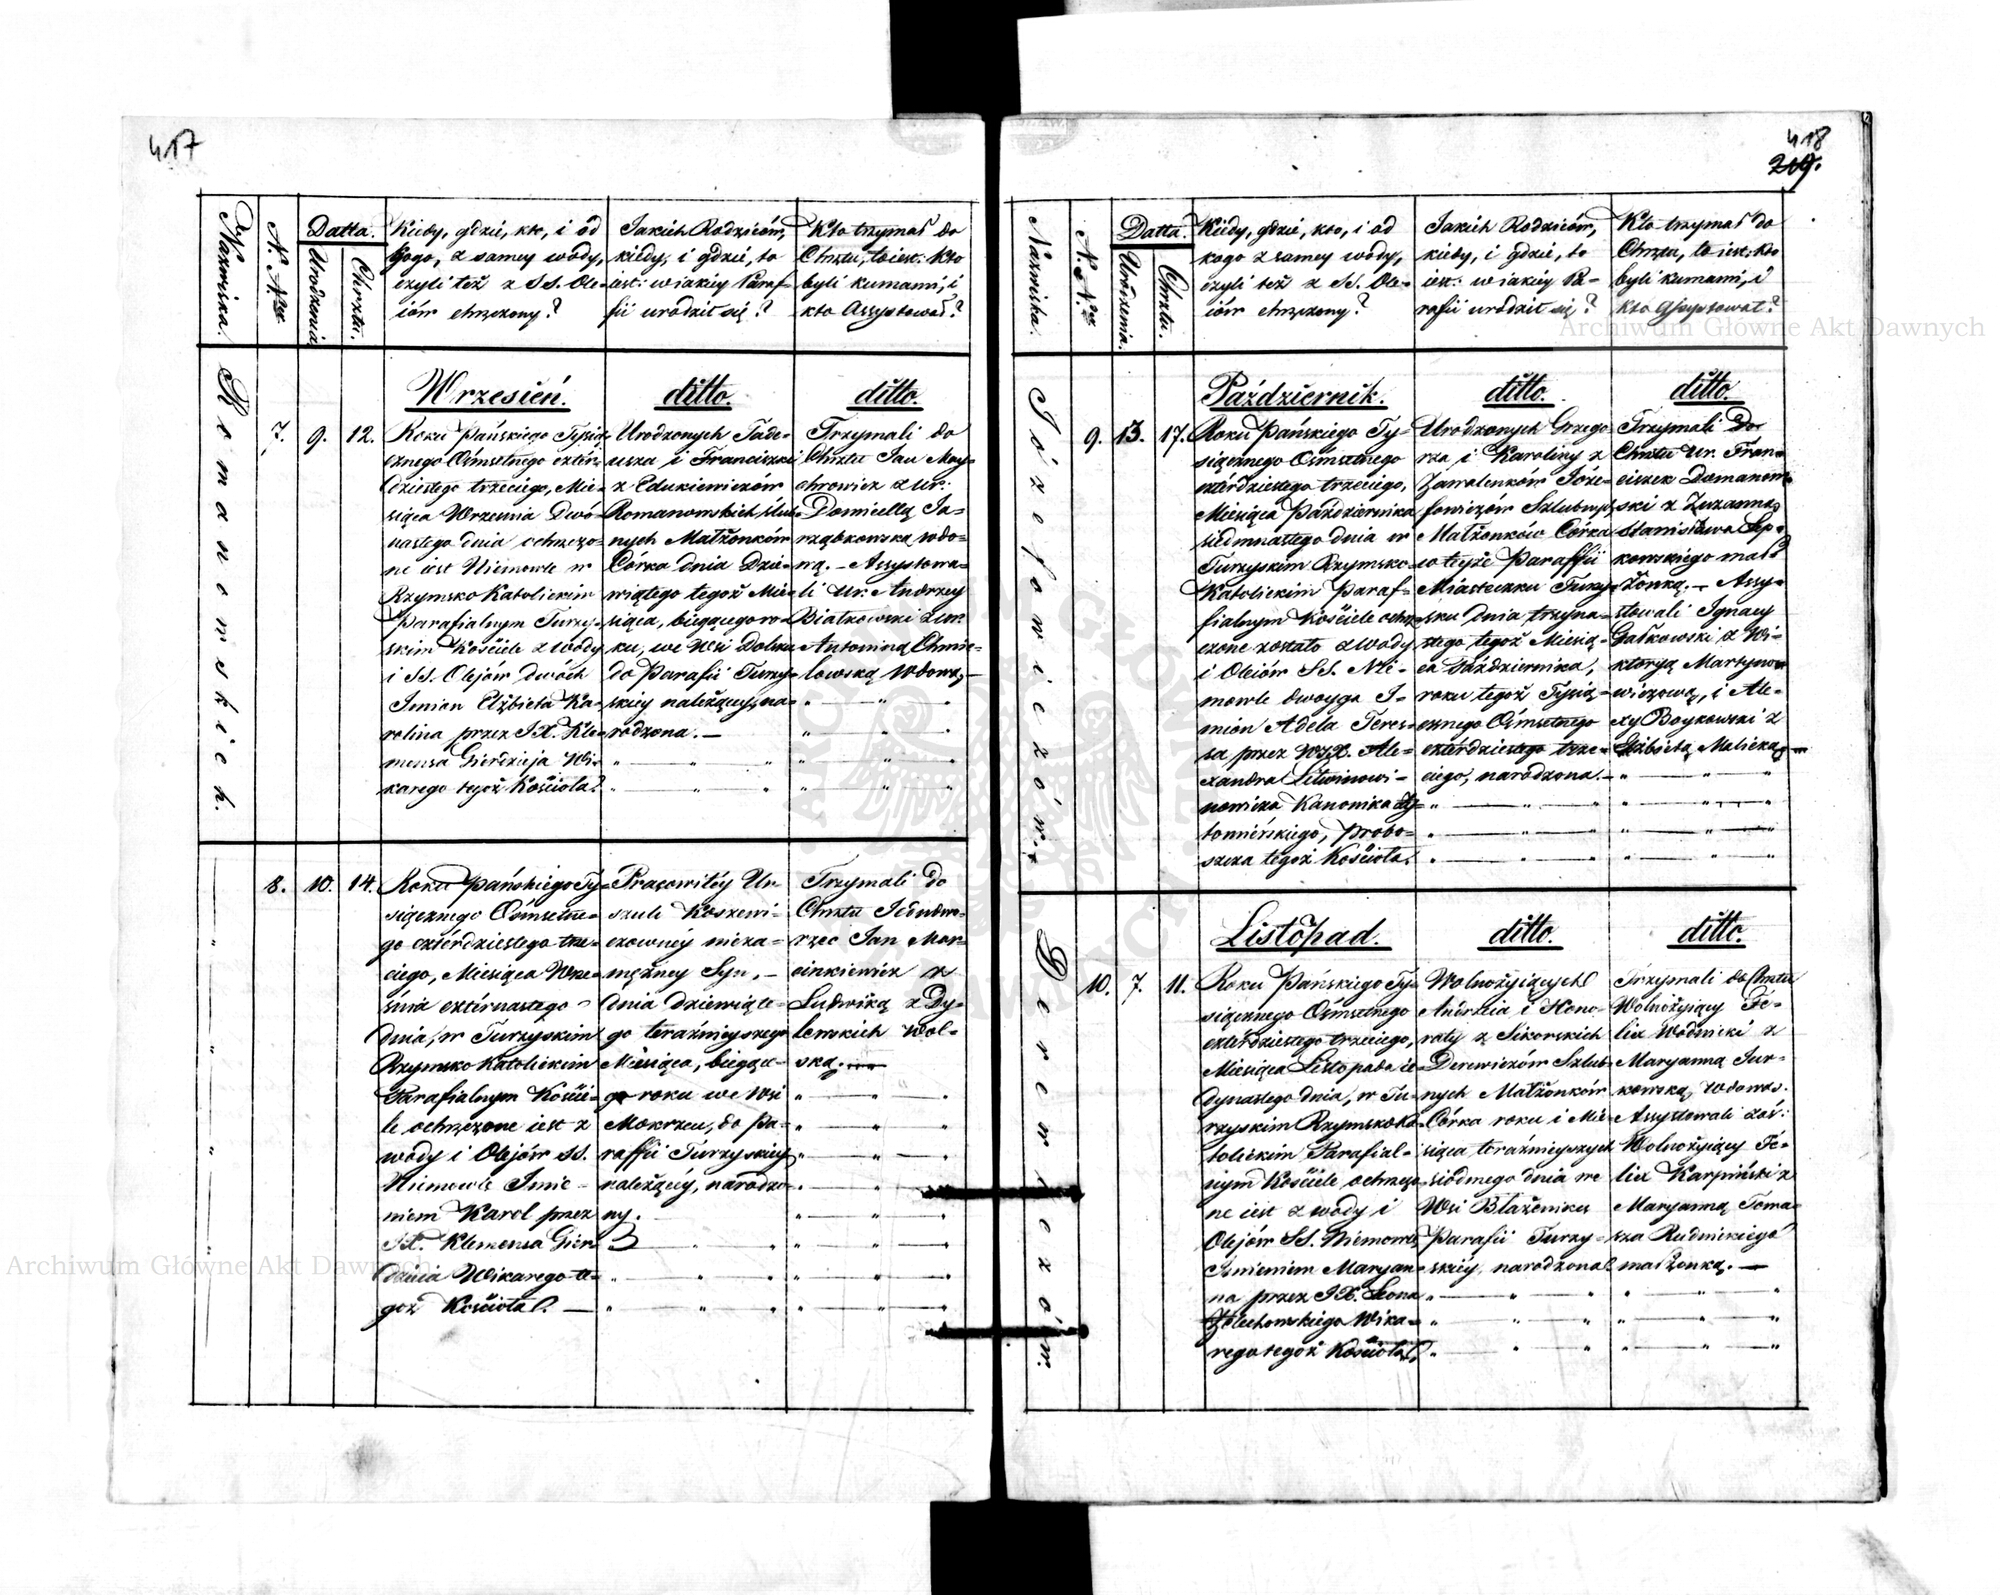 417
Nazwiska.
N. Nro
Datta.
Urodzenia
Chrztu.
Kiedy, gdzie, kto, i od
kogo, z samey wody,
czyli też z SS. Ole-
iów chrzczony?
Jakich Rodziców,
kiedy, i gdzie, to
iest: w iakiey Paraf-
fii urodził się?
Kto trzymał do
Chrztu, to iest: kto
byli kumami, i
kto Assystował?
Romanowskich.
7.
9.
12.
Wrzesień.
Roku Pańskiego Tysią-
cznego Ośmsetnego czter-
dziestego trzeciego, Mie-
siąca Września Dwó-
nastego dnia ochrzczo-
ne iest Niemowle w
Rzymsko Katolickim
Parafialnym Turzy-
skim Kościele z wody
i SS. Olejów dwóch
Imion Elżbieta Ka-
rolina przez JX. Kle-
mensa Gierdzieja Wi-
karego tegoż Kościoła.
ditto.
Urodzonych Tade-
usza i Franciszki
z Edukiewiczów
Romanowskich ślub-
nych Małżonków
Córka dnia Dzie-
wiątego tegoż Mie-
siąca, bieżącego ro-
ku, we Wsi Dolsku
do Parafii Turzy-
skiey należącey, na-
rodzona.
ditto.
Trzymali do
Chrztu Jan May-
chrowicz z Ur:
Domicellą Ja-
rząbkowską wdo-
wą. – Assystowa-
li Ur. Andrzey
Białkowski z Ur.
Antoniną Chmie-
lowską Wdową,
8.
10.
14.
Roku Pańskiego Ty-
siącznego Ośmsetne-
go czterdziestego trze-
ciego, Miesiąca Wrze-
śnia czternastego
dnia, w Turzyskim
Rzymsko Katolickim
Parafialnym Koście-
le ochrzczone iest z
wody i Olejów SS.
Niemowle Imie-
niem Karol przez
JX. Klemensa Gier-
dzieia Wikarego te-
goż Kościoła.
Pracowitéy Ur-
szuli Koszewi-
czownéy nieza-
mężney Syn,
dnia dziewiąte-
go teraźnieyszego
Miesiąca, bieżące-
go roku we Wsi
Mokrzcu, do Pa-
raffii Turzyskiey
należącéy, narodzo-
ny.
Trzymali do
Chrztu Jednodwo-
rzec Jan Mar-
cinkiewicz z
Ludwiką z Dy-
lewskich Wol-
ską.
418
219.
Nazwiska.
N. Nro
Datta.
Urodzenia.
Chrztu.
Kiedy, gdzie, kto, i od
kogo z samey wody,
czyli też z SS. Ole-
iów chrzczony?
Jakich Rodziców,
kiedy, i gdzie, to
iest: w iakiey Pa-
rafii urodził się?
Kto trzymał do
Chrztu, to iest: kto
byli kumami, i
kto Assystował?
Józefowiczów.
9.
13.
17.
Październik.
Roku Pańskiego Ty-
siącznego Ośmsetnego
czterdziestego trzeciego,
Miesiąca Października
siedmnastego dnia w
Turzyskim Rzymsko-
Katolickim Paraf-
fialnym Kościele ochrz-
czone zostało z wody
i Olejów SS. Nie-
mowle dwoyga I-
mion Adela Teres-
sa przez WJX. Ale-
xandra Litwinowi-
nowicza Kanonika Ży-
tomierskiego, Probo-
szcza tegoż Kościoła.
ditto.
Urodzonych Grzego-
rza i Karoliny z
Zawalenków Józe-
fowiczów Szlubnych
Małżonków Córka
w teyże Paraffii
Miasteczku Turzy-
sku dnia trzyna-
stego tegoż Miesią-
ca Października,
roku tegoż Tysią-
cznego Ośmsetnego
czterdziestego trze-
ciego, narodzona.
ditto.
Trzymali Do
Chrztu Ur. Fran-
ciszek Domanow-
ski z Zuzanną
Stanisława Lep-
kowskiego mał-
żonką. – Assy-
stowali Ignacy
Gałkowski z Wi-
ktoryą Martyno-
wiczową, i Ale-
xy Boykowski z
Elżbietą Malicką
Derewiczów.
10.
7.
11.
Listopad.
Roku Pańskiego Ty-
siącznego Ośmsetnego
czterdziestego trzeciego,
Miesiąca Listopada ie-
dynastego dnia, w Tu-
rzyskim Rzymsko Ka-
tolickim Parafial-
nym Kościele ochrzczo-
ne iest z wody i
Olejów SS. Niemowle,
Imieniem Maryan-
na przez JX. Leona
Żelechowskiego Wika-
rego tegoż Kościoła.
ditto.
Wolnożyiących
Andrzeia i Hono-
raty z Sikorskich
Derewiczów Szlub-
nych Małżonków
Córka roku i Mie-
siąca teraźnieyszych
siódmego dnia we
Wsi Błażeniku
Parafii Turzy-
skiéy, narodzona
ditto.
Trzymali do Chrztu
Wolnożyiący Fe-
lix Wodnicki z
Maryanną Jur-
kowską, Wdową.
Assystowali zaś:
Wolnożyiący Fe-
lix Karpiński z
Maryanną Toma-
sza Rudnickiego
małżonką.
Archiwum Główne Akt Dawnych
Archiwum Główne Akt Dawnych